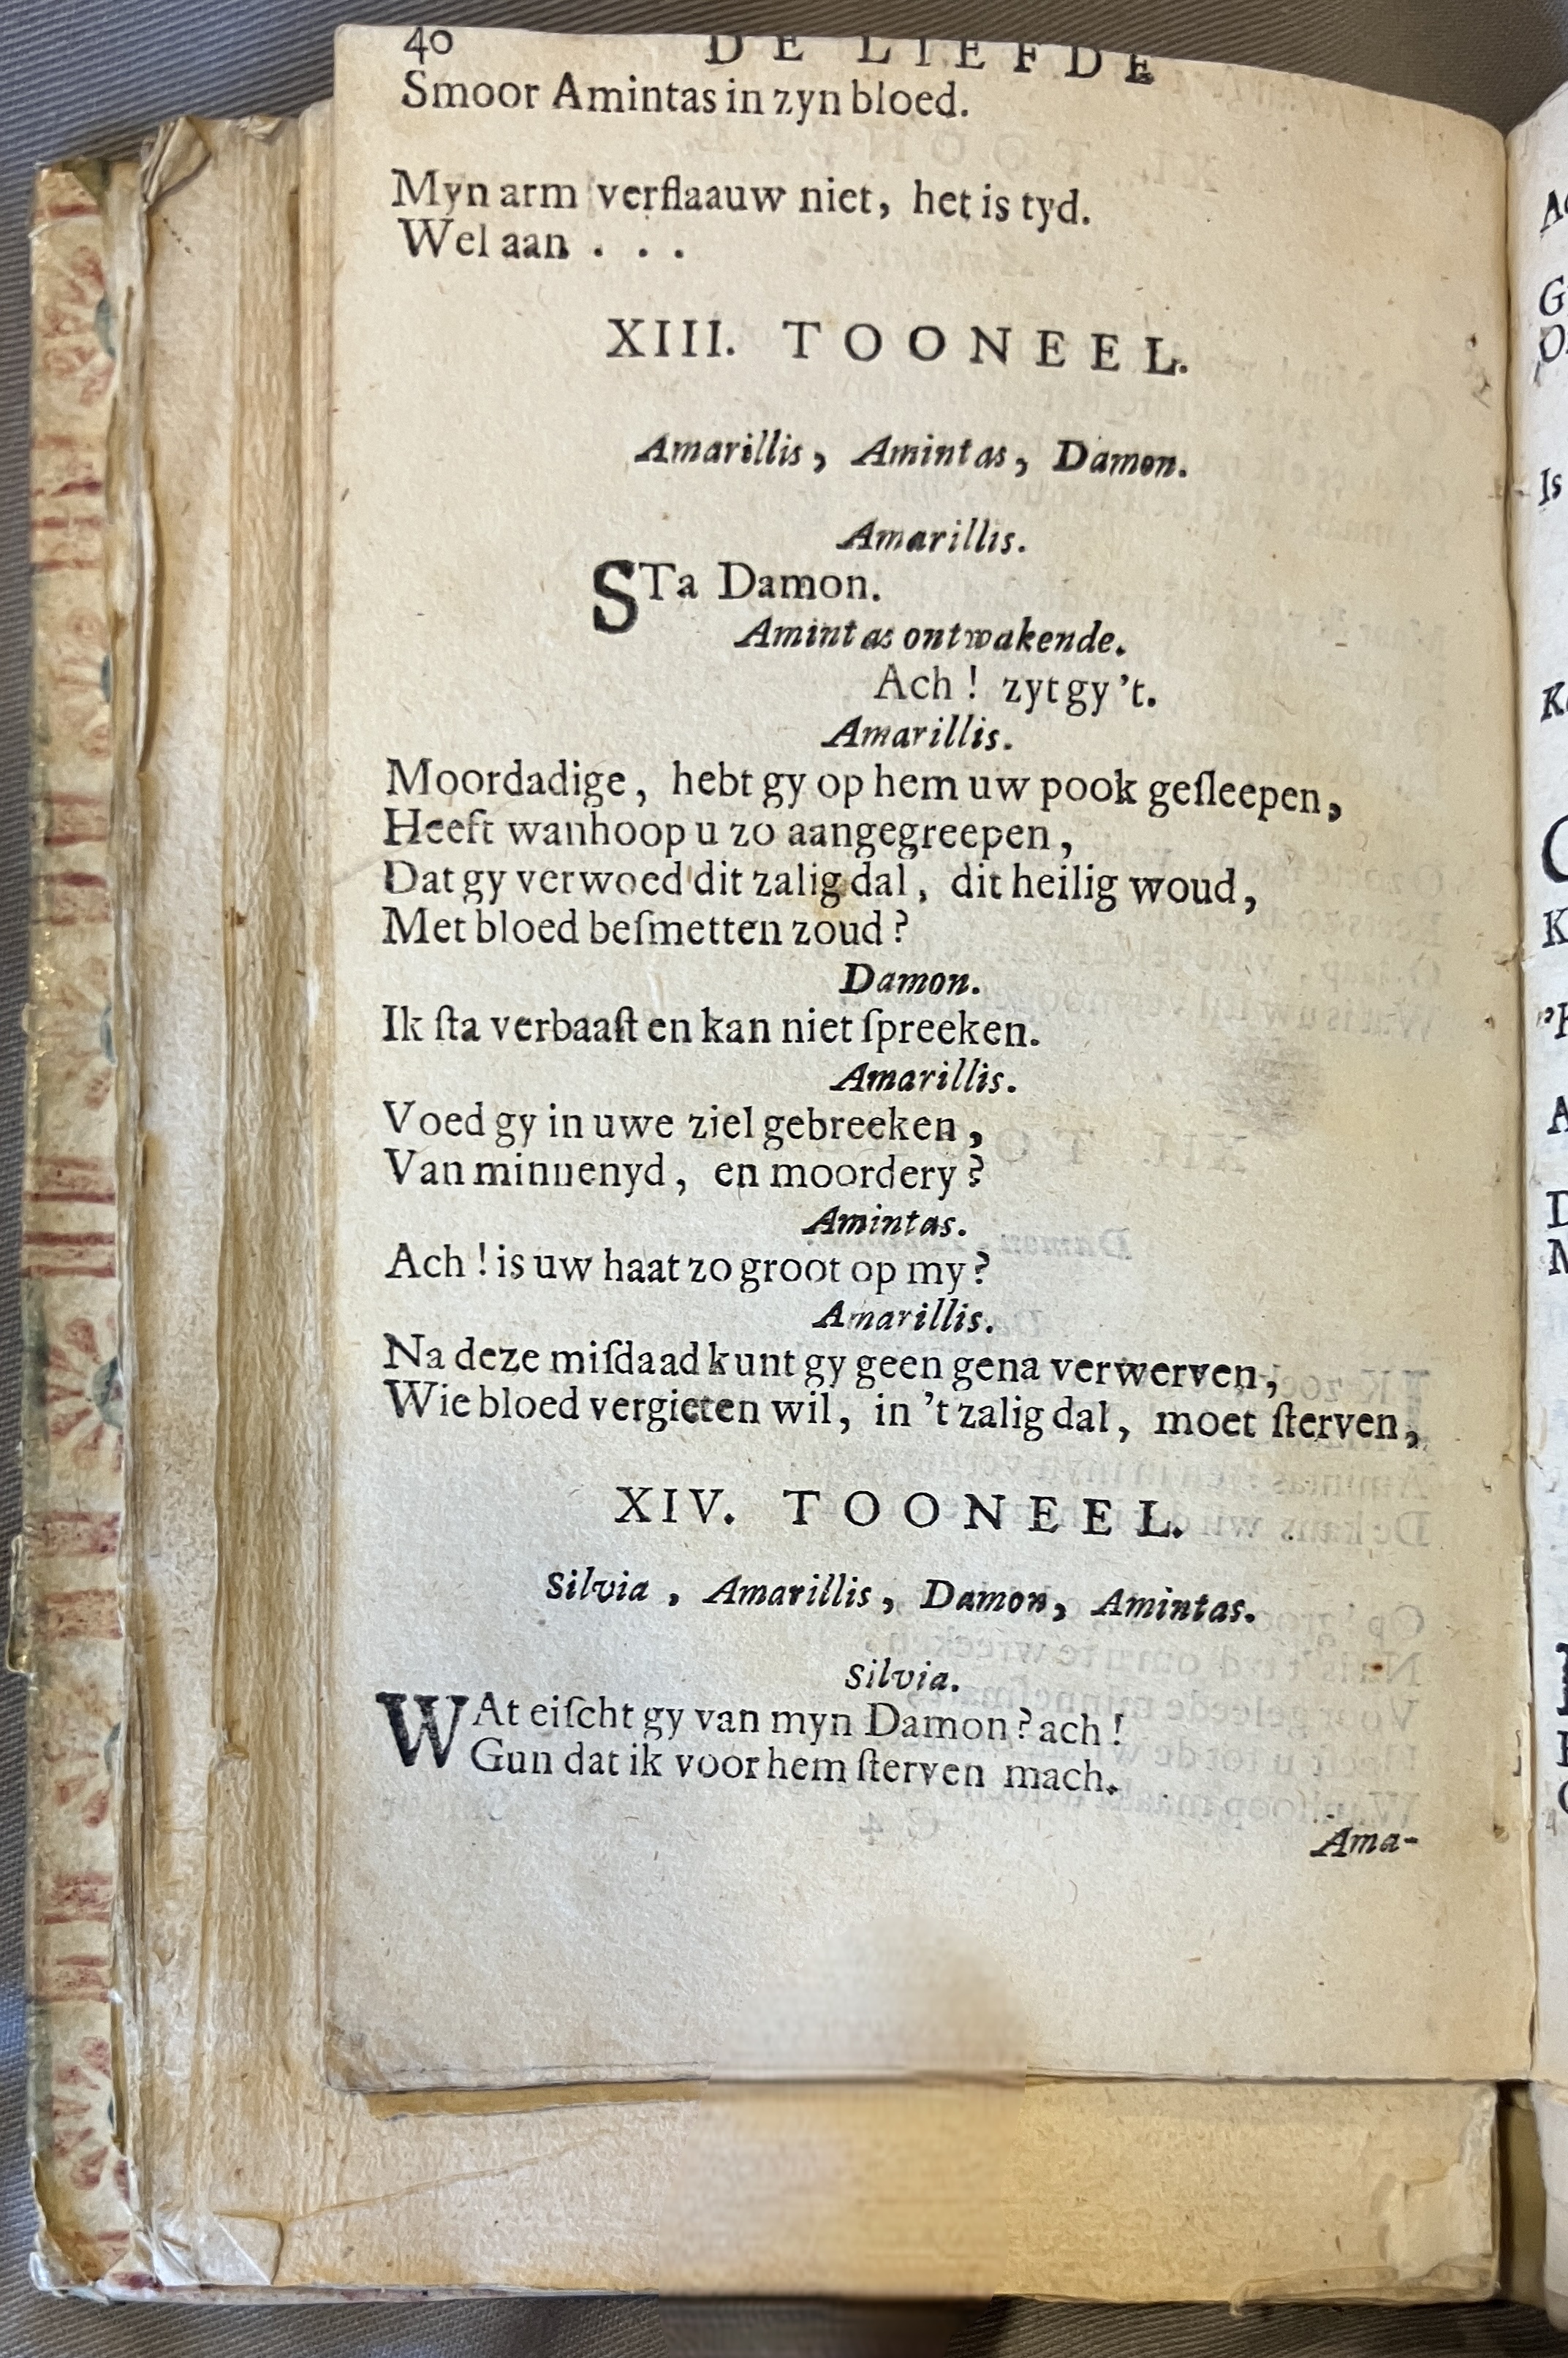 40 DE LIEFDE
Smoor Amintas in zyn bloed.
Myn arm verſlaauw niet, het is tyd.
Wel aan . . .
XIII. TOONEEL.
Amarillis, Amintas, Damon.
Amarillis.
STa Damon.
Amintas ontwakende.
Ach! zyt gy 't.
Amarillis.
Moordadige, hebt gy op hem uw pook geſleepen,
Heeft wanhoop u zo aangegreepen,
Dat gy verwoed dit zalig dal, dit heilig woud,
Met bloed beſmetten zoud?
Damon.
Ik ſta verbaaſt en kan niet ſpreeken.
Amarillis.
Voed gy in uwe ziel gebreeken,
Van minnenyd, en moordery?
Amintas.
Ach! is uw haat zo groot op my?
Amarillis.
Na deze miſdaad kunt gy geen gena verwerven,
Wie bloed vergieten wil, in 't zalig dal, moet ſterven,
XIV. TOONEEL.
Silvia, Amarillis, Damon, Amintas.
Silvia.
WAt eiſcht gy van myn Damon? ach!
Gun dat ik voor hem ſterven mach.
Ama-